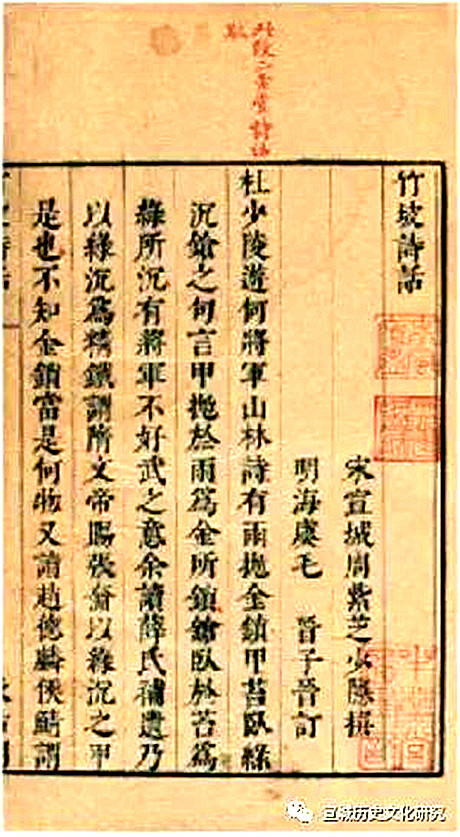 此段二老堂詩話
竹坡詩話
宋宣城周紫芝少隱撰
明海虞毛 晉子晉訂
杜少陵遊何將軍山林詩有雨拋金鎖甲苔臥綠
沉鎗之句言甲拋於雨爲金所鎖鎗臥於苔爲
綠所沉有將軍不好武之意余讀薛氏補遺乃
以綠沉爲精鐵謂隋文帝賜張奫以綠沉之甲
是也不知金鎖當是何物又讀趙德麟侯鯖謂
宣城历史文化研究